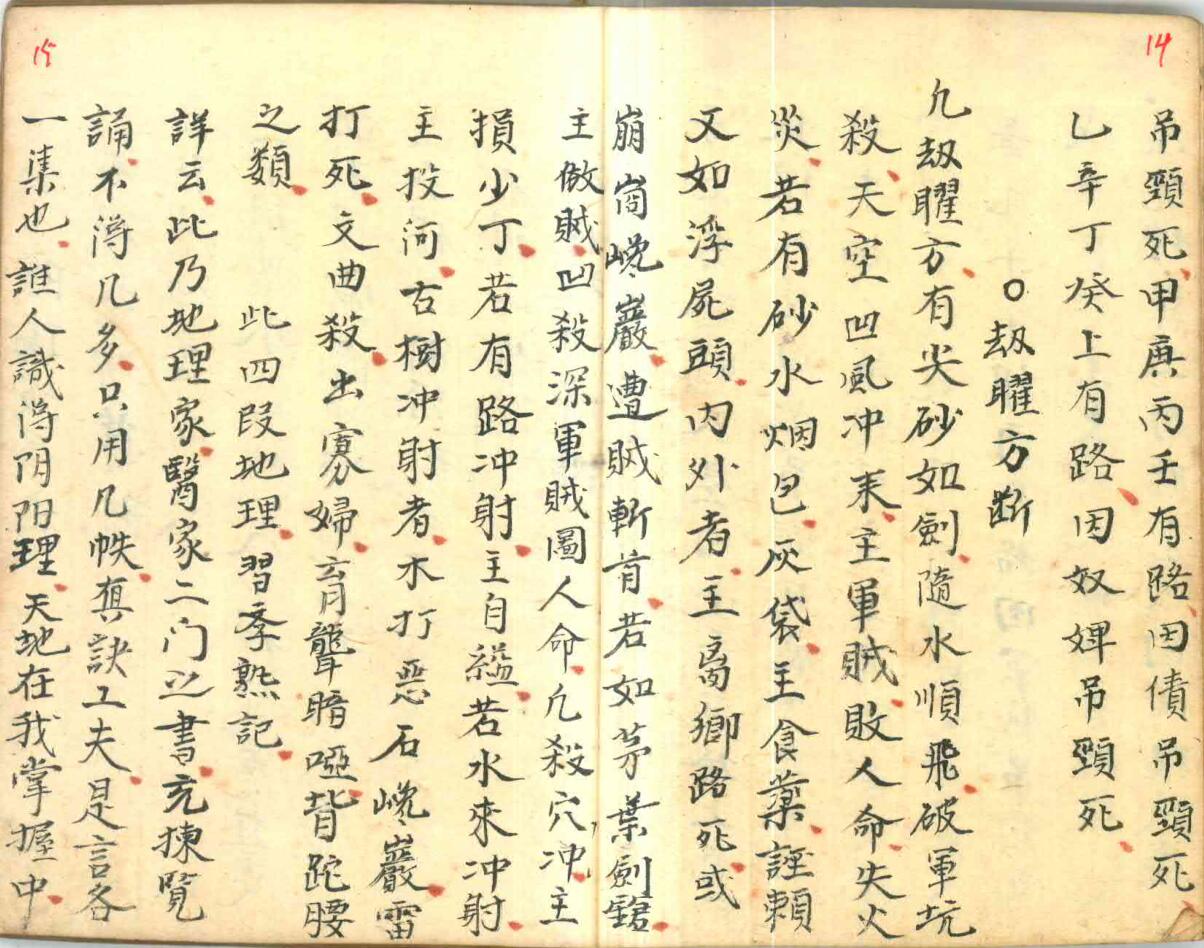 14
吊頸死甲庚丙壬有路因債吊頸死
乙辛丁癸上有路因奴婢吊頸死
○劫曜方断
凡劫曜方有尖砂如劍隨水順飛破軍坑
殺天空凹風冲来主軍賊敗人命失火
災若有砂水烟包灰袋主食藥誣賴
又如浮屍頭內外者主离鄉路死或
崩崗巉巖遭賊斬首若如茅葉劍鎗
15
主做賊凹殺深軍賊圖人命凢殺穴冲主
損少丁若有路冲射主自縊若水來冲射
主投河古樹冲射者木打惡石巉巖雷
打死文曲殺出寡婦盲聾暗啞背跎腰
之類 此四段地理習季熟記
詳云此乃地理家醫家二门之書充揀覽
誦不淂几多只用几帙真訣工夫是言各
一集也誰人識淂阴阳理天地在我掌握中